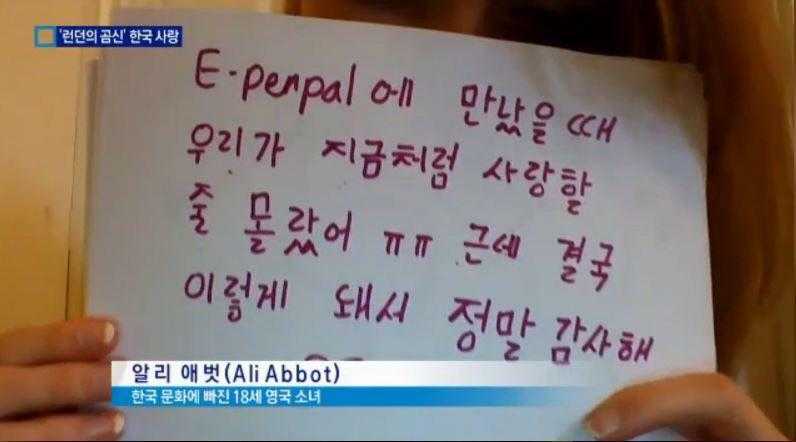 '런던의 곰신' 한국 사랑
E-penpal에 만났을 때
우리가 지금처럼 사랑할
줄 몰랐어 ㅠㅠ 근데 결국
이렇게 돼서 정말 감사해
알리 애벗(Ali Abbot)
한국 문화에 빠진 18세 영국 소녀